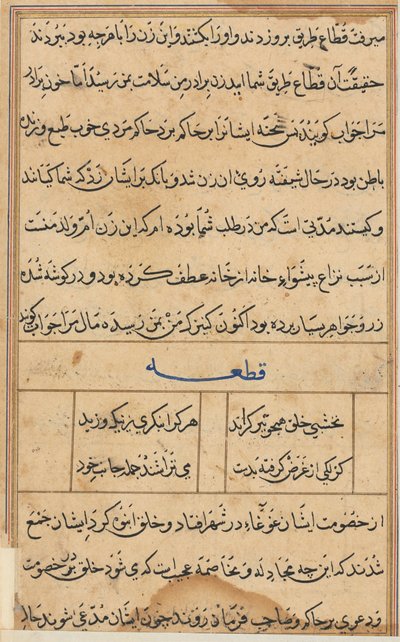 میرفت قطاع طریق بروزدند و او را بکشتند و این زن را با هرچه بود ببردند
حقیقت آن قطاع طریق شما اید زن برادر من سلامت بمن رسد اما خون برادر
مرا جواب گویید پس شحنه ایشانرا بر حاکم برد حاکم مردی خوب طبع و زنده
باطن بود در حال شیفته روی آن زن شد و بانگ بر ایشان زد که شما کیانند
و کیستند مدتی است که من در طلب شما بوده ام که این زن ام ولد منست
از سبب نزاع پیشواء خانه از خانه عطف کرده بود و در گوشه شده
زر و جواهر بسیار برده بود اکنون کنیزک من بمن رسیده مال مرا جواب گویند
قطعه
نخشبی خلق همچو تیر گرانند هر کرا بنگری ز نیک و ز بد
کزلکی از غرض گرفته بدست می تراشند جمله جانب خود
از خصومت ایشان غوغاء در شهر افتاد و خلق انبوه گرد ایشان جمع
شدند که این چه مجادله و مخاصمه عجیب است که می شود خلق برین خصومت
و دعوی بر حاکم و صاحب فرمان روند چون ایشان مدعی شوند حال